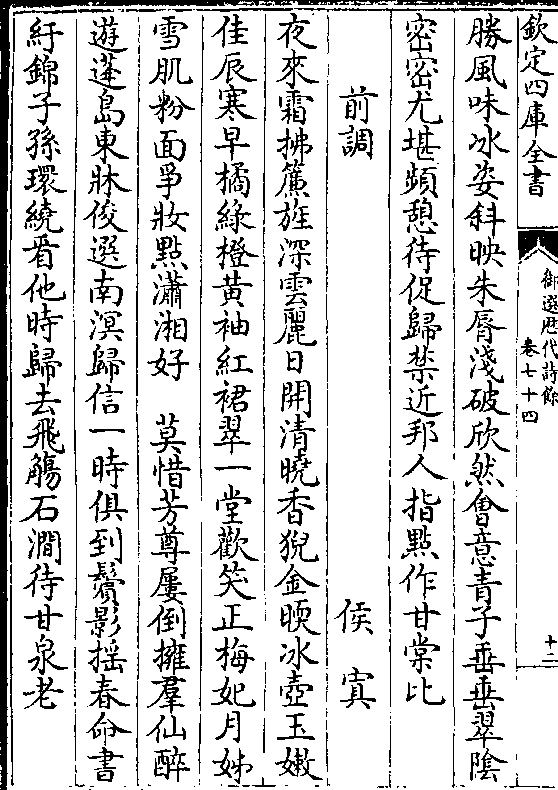 欽定四庫全書
御選歷代詩餘
卷七十四
十二
勝風味冰姿斜映朱脣淺破欣然會意青子垂垂翠陰
密密尤堪頻憩待促歸禁近邦人指點作甘棠比
前調 侯寘
夜來霜拂簾旌深雲麗日開清曉香猊金暖冰壺玉嫩
佳辰寒早橘綠橙黃袖紅裙翠一堂歡笑正梅妃月姊
雪肌粉面爭妝點瀟湘好 莫惜芳尊屢倒擁羣仙醉
遊蓬島東牀俊選南溟歸信一時俱到鬢影搖春命書
紆錦子孫環繞看他時歸去飛觴石澗待甘泉老